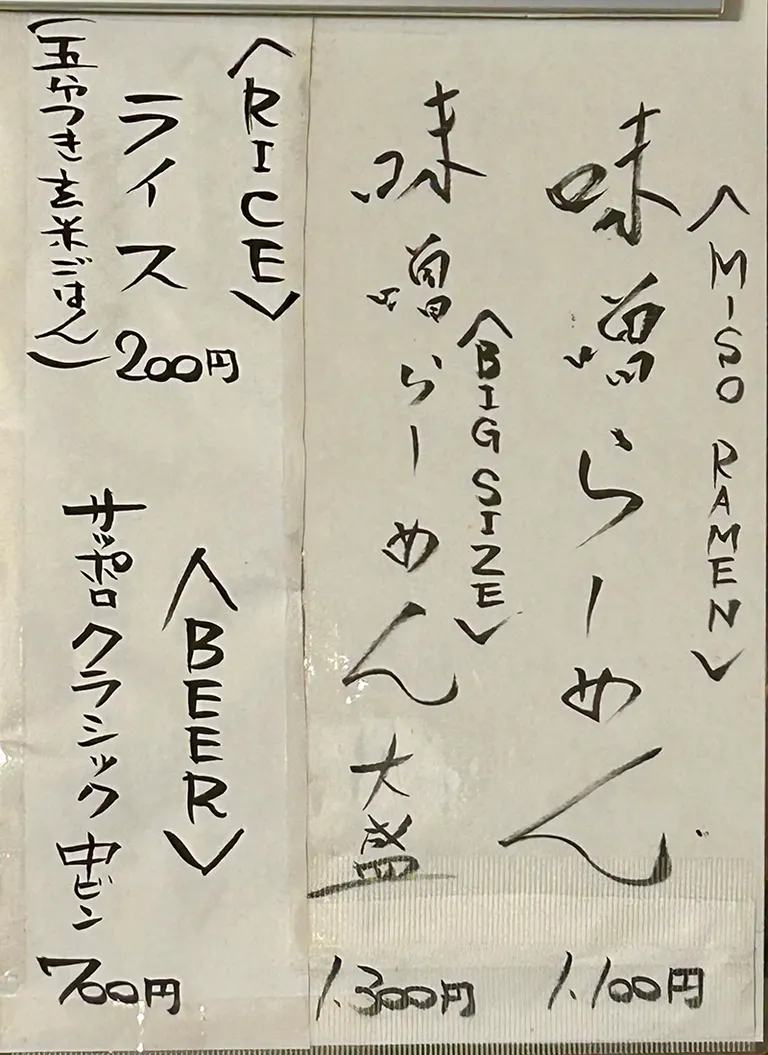 〈MISO RAMEN〉
味噌らーめん
1.100円
〈BIG SIZE〉
味噌らーめん大盛
1.300円
〈RICE〉
ライス
200円
(五分つき玄米ごはん)
〈BEER〉
サッポロクラシック中ビン
700円